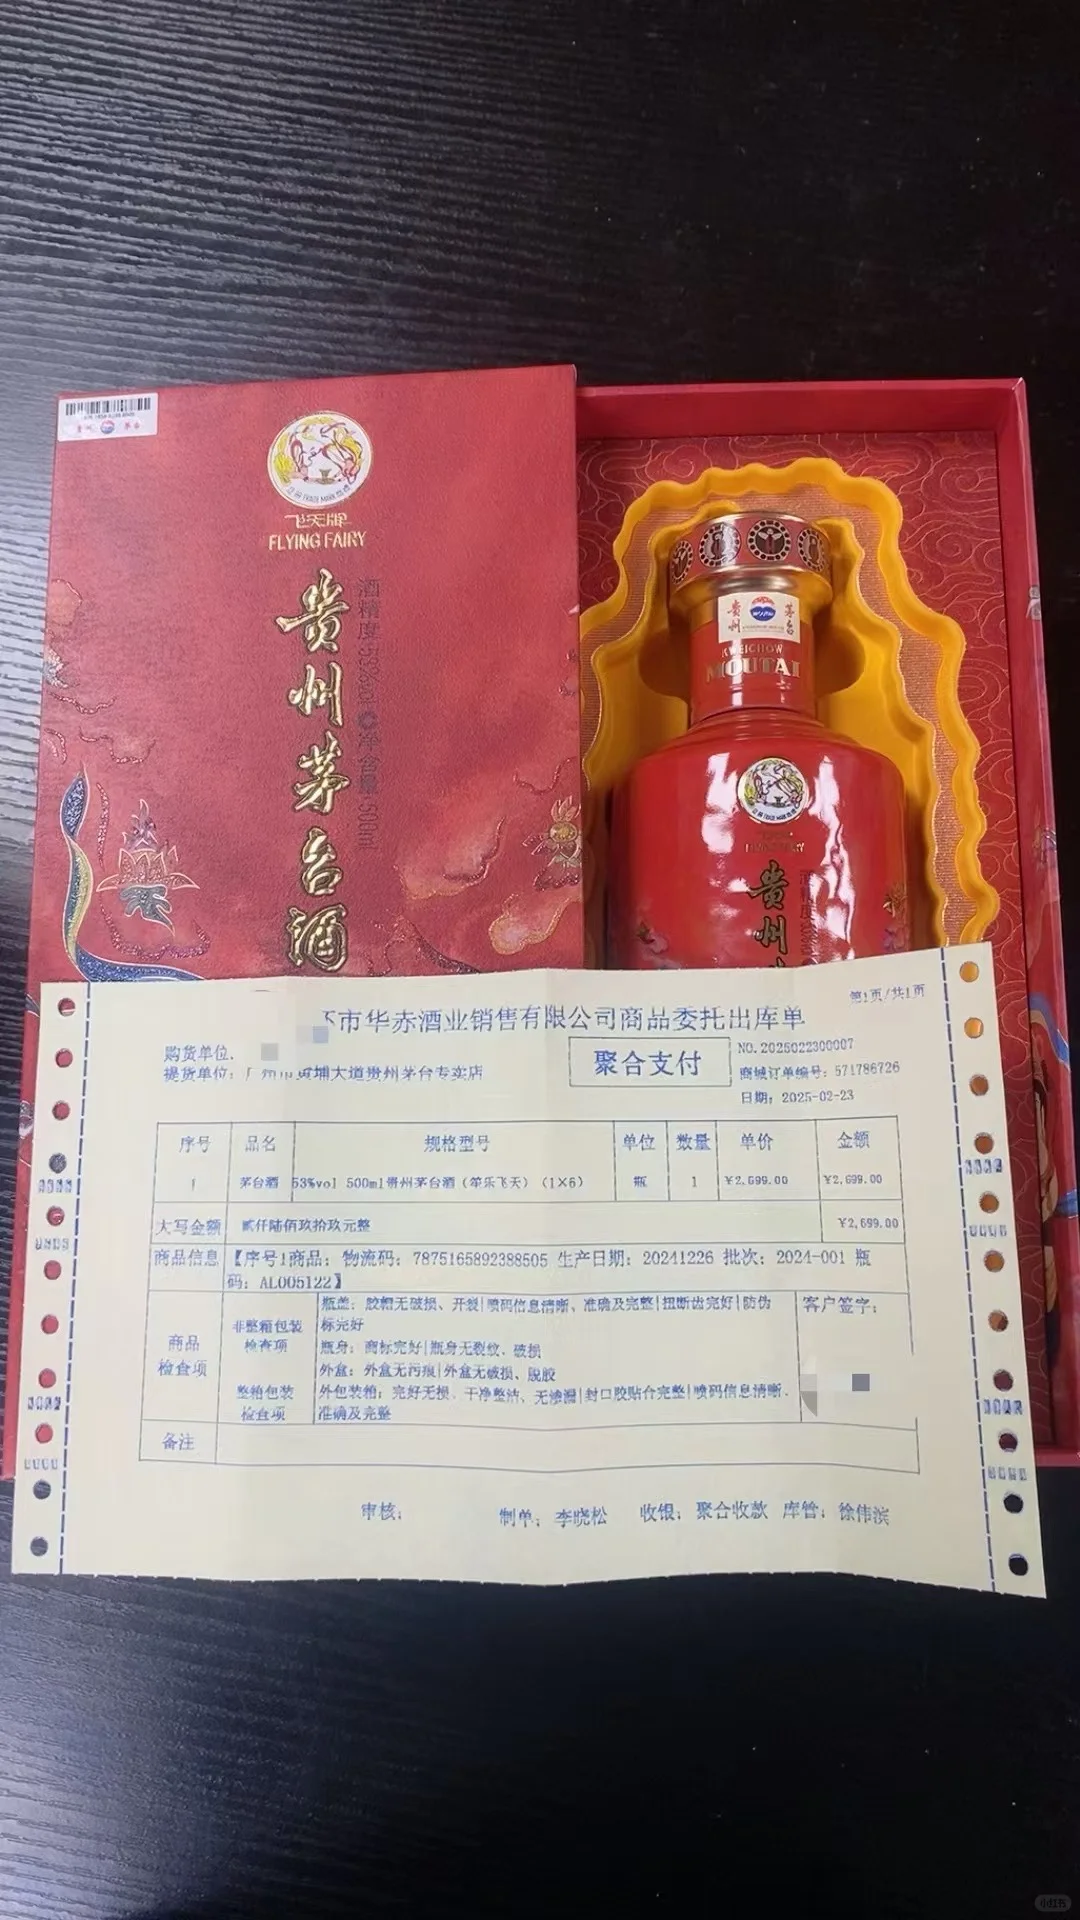 贵州 茅台
注册 TRADE MARK 商标
飞天牌
FLYING FAIRY
贵州茅台酒
酒精度53%vol 净含量500ml
贵州 茅台
KWEICHOW
MOUTAI
FLYING FAIRY
贵州
第1页/共1页
市华赤酒业销售有限公司商品委托出库单
购货单位:
提货单位:广州市黄埔大道贵州茅台专卖店
聚合支付
NO.2025022300007
商城订单编号:571786726
日期:2025-02-23
序号 品名 规格型号 单位 数量 单价 金额
1 茅台酒 53%vol 500ml贵州茅台酒(笙乐飞天)(1×6) 瓶 1 ¥2,699.00 ¥2,699.00
大写金额 贰仟陆佰玖拾玖元整 ¥2,699.00
商品信息 【序号1商品:物流码:7875165892388505 生产日期:20241226 批次:2024-001 瓶
码:AL005122】
商品
检查项
非整箱包装
检查项
瓶盖:胶帽无破损、开裂|喷码信息清晰、准确及完整|扭断齿完好|防伪
标完好
瓶身:商标完好|瓶身无裂纹、破损
外盒:外盒无污痕|外盒无破损、脱胶
整箱包装
检查项
外包装箱:完好无损、干净整洁、无渗漏|封口胶贴合完整|喷码信息清晰、
准确及完整
客户签字:
备注
审核: 制单:李晓松 收银:聚合收款 库管:徐伟滨